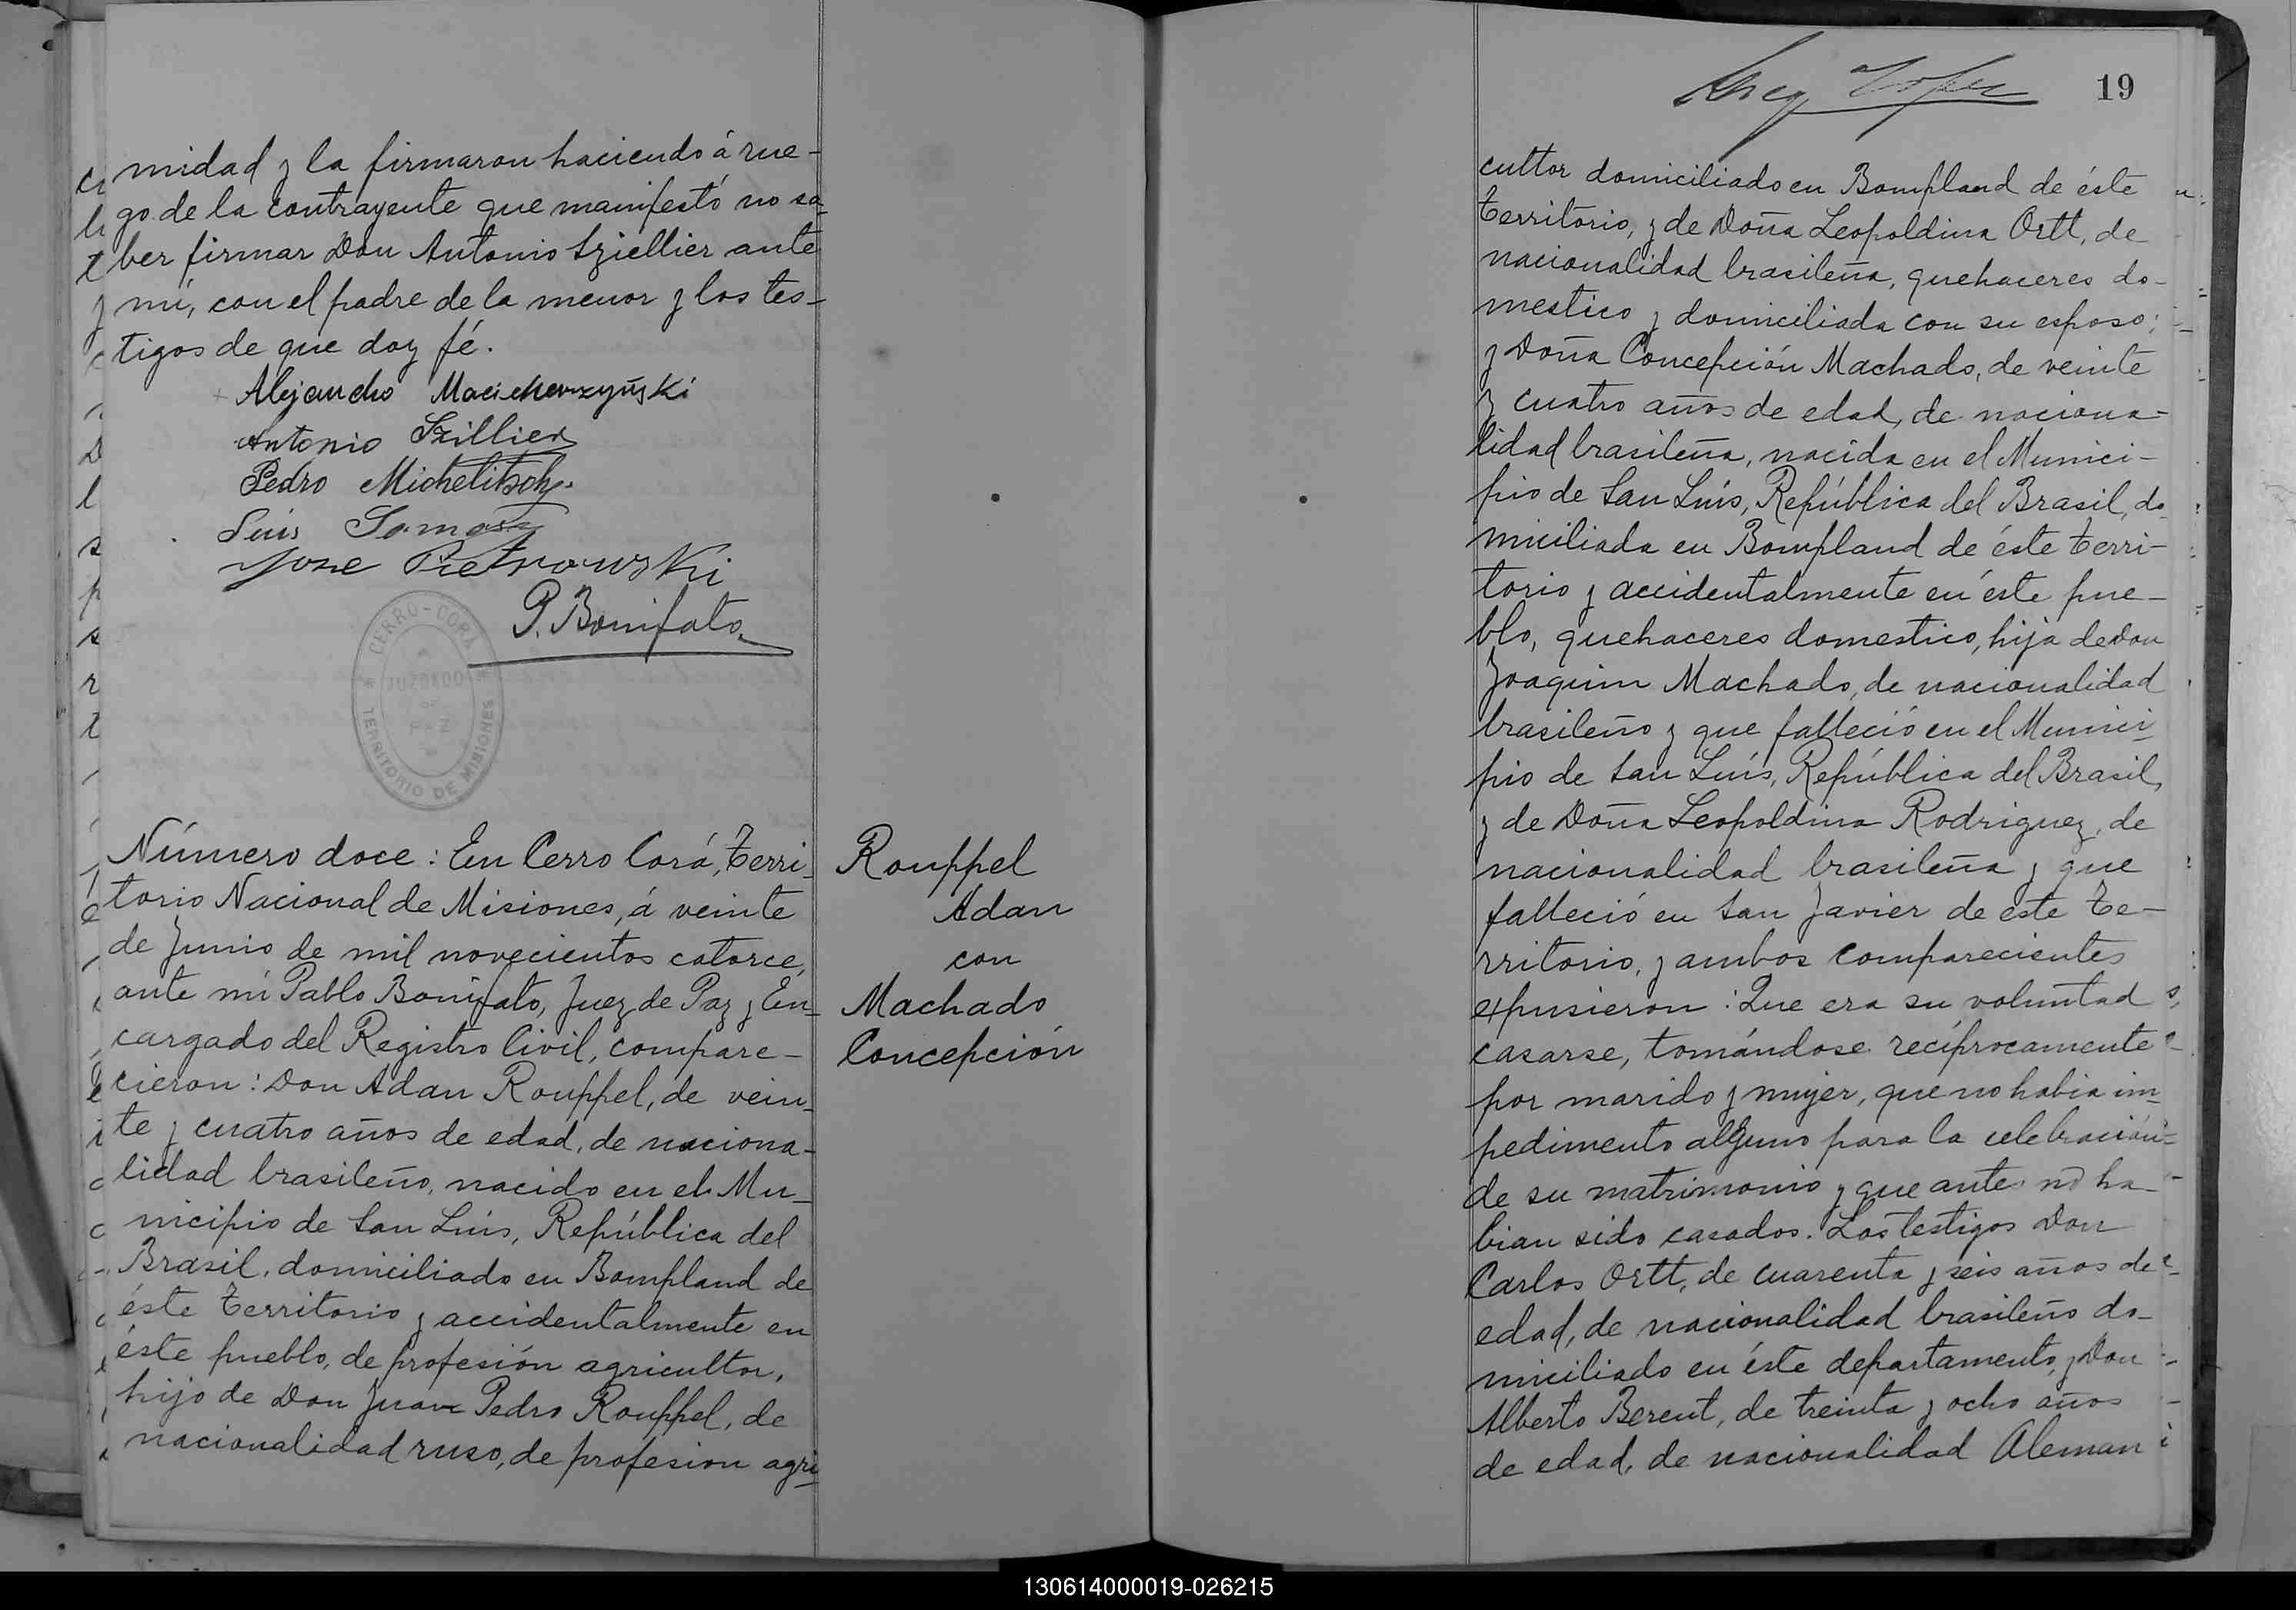 midad y la firmaron haciendo á rue-
go de la contrayente que manifestó no sa-
ber firmar Don Antonio Sziellier ante
mí, con el padre de la menor y los tes-
tigos de que doy fé.
Alejandro Maciekerzyński
Antonio Szillier
Pedro Michelitsch
Luis
Jose Pietrowski
P. Bonifato
CERRO-CORÁ
JUZGADO
DE
PAZ
TERRITORIO DE MISIONES
Número doce: En Cerro Corá, Terri-
torio Nacional de Misiones, á veinte
de Junio de mil novecientos catorce,
ante mí Pablo Bonifato, Juez de Paz y En-
cargado del Registro Civil, compare-
cieron: Don Adan Rouppel, de vein-
te y cuatro años de edad, de naciona-
lidad brasileño, nacido en el Mu-
nicipio de San Luis, República del
Brasil, domiciliado en Bompland de
éste Territorio y accidentalmente en
éste pueblo, de profesión agricultor,
hijo de Don Juan Pedro Rouppel, de
nacionalidad ruso, de profesion agri-
Rouppel
Adan
con
Machado
Concepción
19
cultor domiciliado en Bompland de éste
Territorio, y de Doña Leopoldina Ortt, de
nacionalidad brasileña, quehaceres do-
mestico y domiciliada con su esposo;
y Doña Concepción Machado, de veinte
y cuatro años de edad, de naciona-
lidad brasileña, nacida en el Munici-
pio de San Luis, República del Brasil, do-
miciliada en Bompland de éste Terri-
torio y accidentalmente en éste pue-
blo, quehaceres domestico, hija de Don
Joaquim Machado, de nacionalidad
brasileño y que falleció en el Munici-
pio de San Luis, República del Brasil,
y de Doña Leopoldina Rodriguez, de
nacionalidad brasileña y que
falleció en San Javier de este Te-
rritorio, y ambos comparecientes
expusieron: Que era su voluntad
casarse, tomándose recíprocamente
por marido y mujer, que no habia im-
pedimento alguno para la celebración
de su matrimonio y que ante no ha-
bian sido casados. Los testigos Don
Carlos Ortt, de cuarenta y seis años de
edad, de nacionalidad brasileño do-
miciliado en éste departamento, y Don
Alberto Berent, de treinta y ocho años
de edad, de nacionalidad Aleman
130614000019-026215